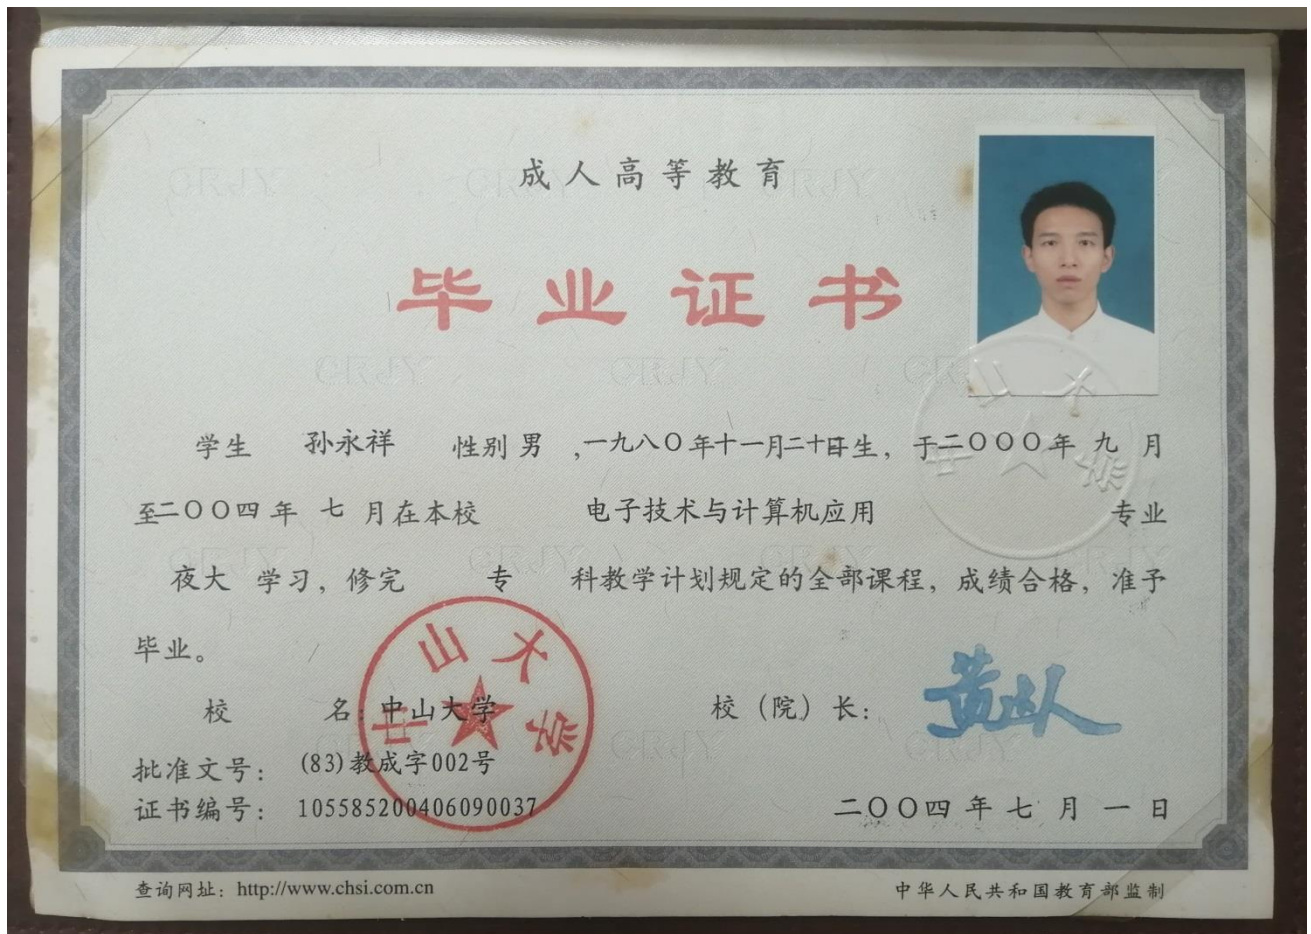 成人高等教育
毕业证书
学生 孙永祥 性别 男 ,一九八〇年十一月二十日生, 于二〇〇〇年 九 月
至二〇〇四年 七 月在本校 电子技术与计算机应用 专业
夜大 学习, 修完 专 科教学计划规定的全部课程, 成绩合格, 准予
毕业。
校 名: 中山大学 校（院）长: 黄达人
批准文号: (83)教成字002号
证书编号: 105585200406090037 二〇〇四 年 七 月 一 日
中山大学
查询网址: http://www.chsi.com.cn 中华人民共和国教育部监制